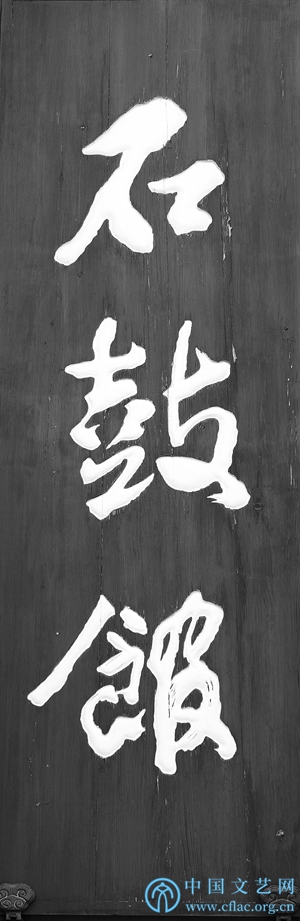 石鼓館
中国文艺网
www.cflac.org.cn